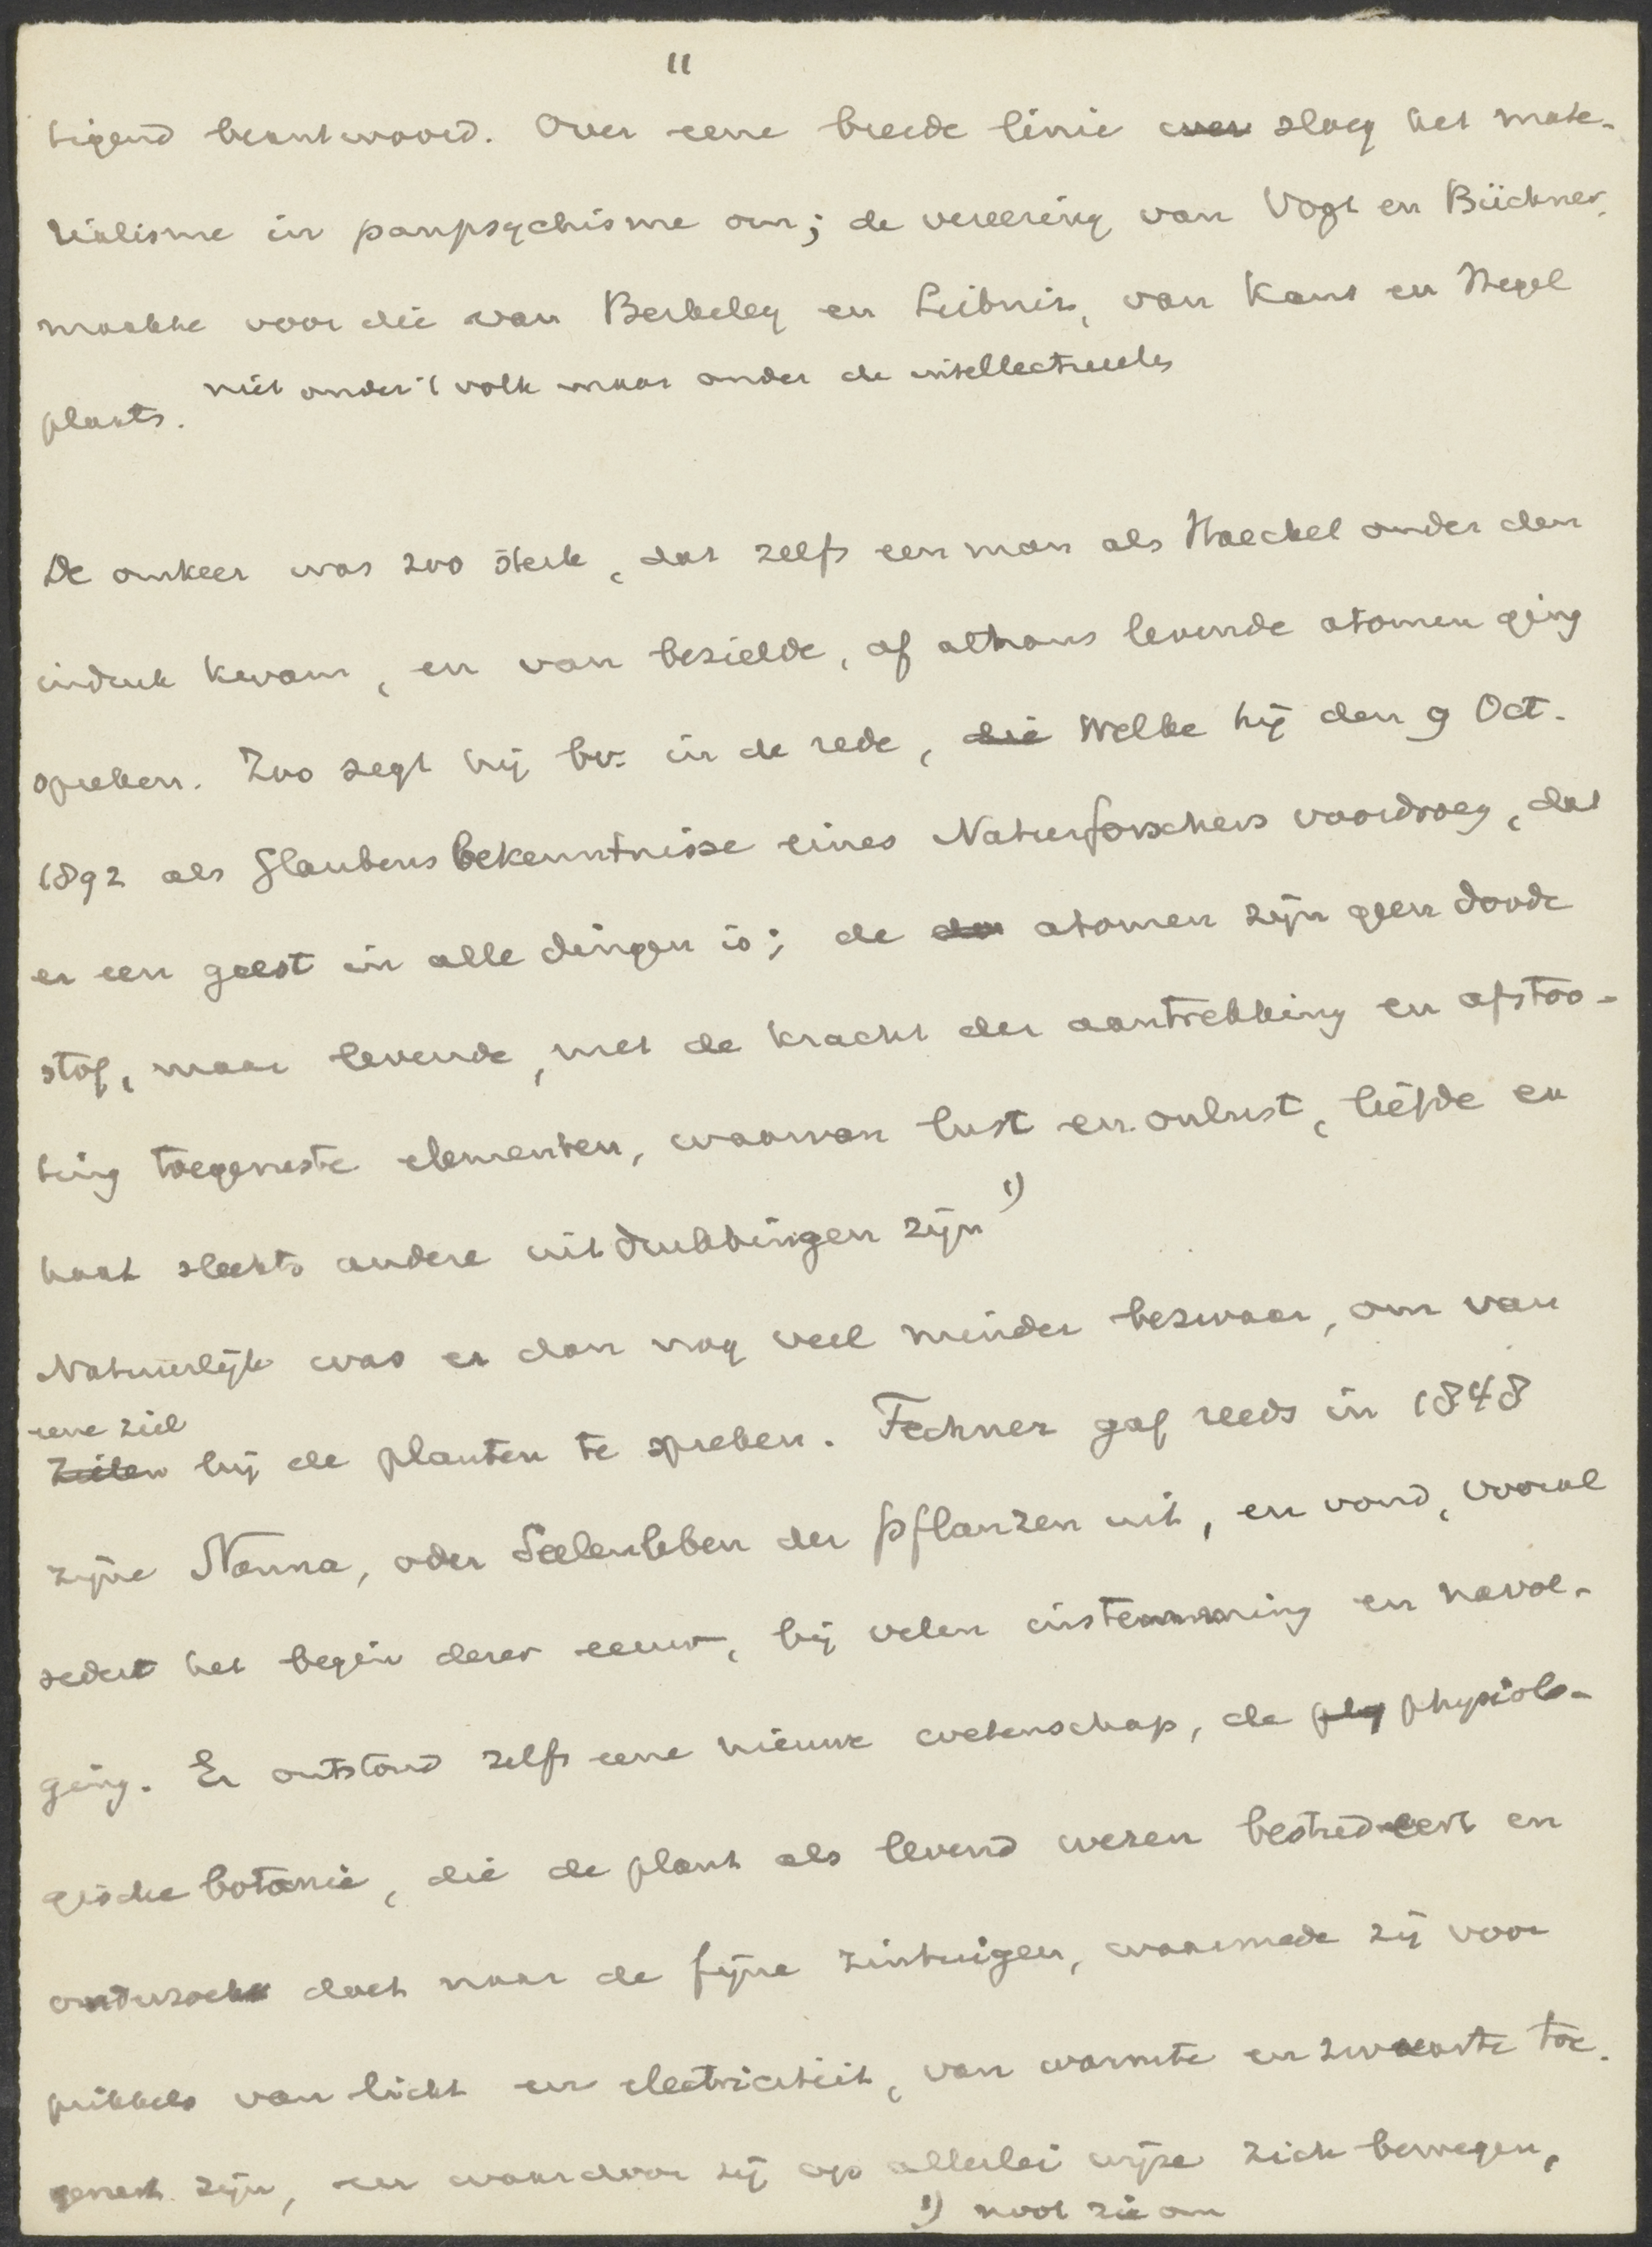 11
tigend beantwoord. Over eene breede linie over sloeg het mate-
rialisme in panpsychisme om; de vereering van Vogt en Büchner
maakte voor die van Berkeley en Leibniz, van Kant en Hegel
niet onder 't volk maar onder de intellectueelen
plaats.
De omkeer was zoo sterk, dat zelfs een man als Haeckel onder den
indruk kwam, en van bezielde, of althans levende atomen ging
spreken. Zoo zegt hij bv. in de rede, die Welke hij den 9 Oct.
1892 als Glaubensbekenntnisse eines Naturforschers voordroeg, dat
er een geest in alle dingen is; de atomen zijn geen doode
stof, maar levende, met de kracht der aantrekking en afstoo-
ting toegeruste elementen, waarvan lust en onlust, liefde en
haat slechts andere uitdrukkingen zijn 1)
Natuurlijk was er dan nog veel minder bezwaar, om van
eene ziel
Zielen bij de planten te spreken. Fechner gaf reeds in 1848
zijne Nanna, oder Seelenleben der Pflanzen uit, en vond, vooral
sedert het begin dezer eeuw, bij velen instemming en navol-
ging. Er ontstond zelfs eene nieuwe wetenschap, de phy physiolo-
gische botanie, die de plant als levend wezen bestudeert en
onderzoek doet naar de fijne zintuigen, waarmede zij voor
prikkels van licht en electriciteit, van warmte en zwaarte toe-
gerust zijn, en waardoor zij op allerlei wijze zich bewegen,
1) noot zie om